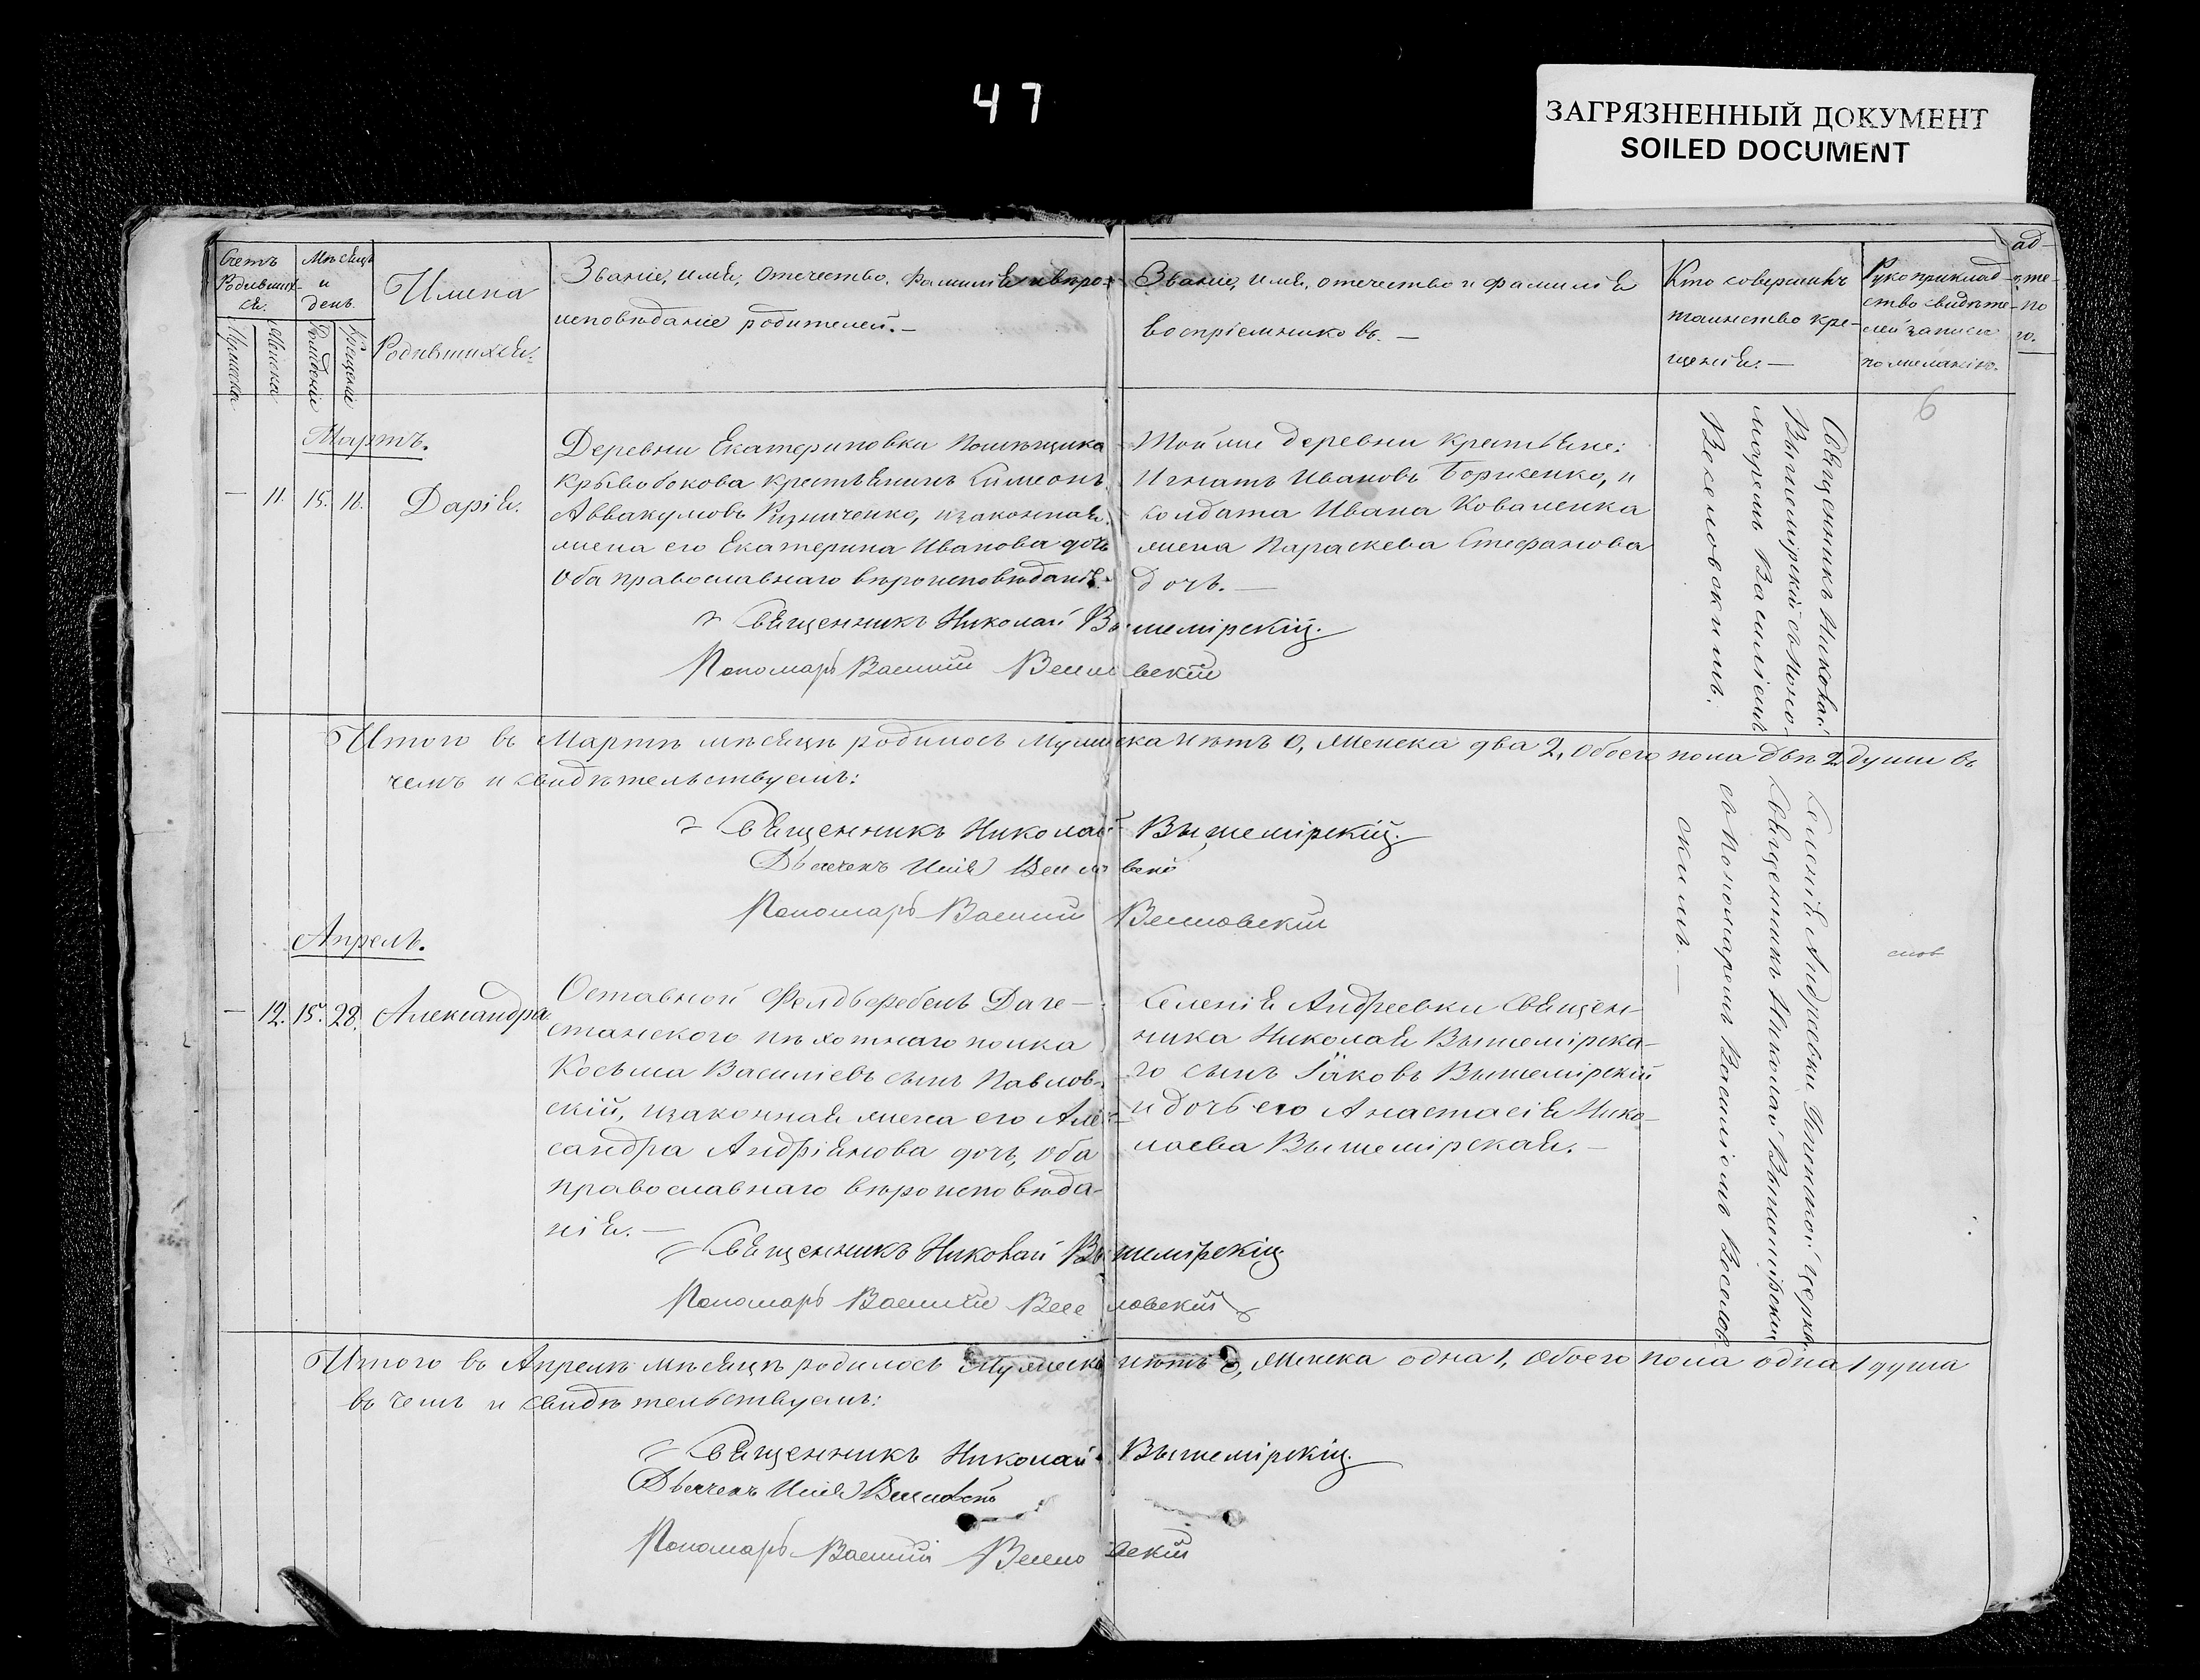 47
ЗАГРЯЗНЕННЫЙ ДОКУМЕНТ
SOILED DOCUMENT
Счетъ Родившихся.
Мѣсяцъ и день.
Имена
Родившихся.
Званіе, имя, отечество, фамилія и вѣро-
исповѣданіе родителей.—
Званіе, имя, отечество и фамилія
воспріемниковъ.—
Кто совершилъ
таинство кре-
щенія.—
Рукоприклад-
ство свидѣте-
лей записи
по желанію.
Мужеска
Женска
Рожденія
Крещенія
6
Мартъ.
— 11. 15. 16. Дарія.
Деревни Екатериновки Помѣщика
Кривобокова крестьянинъ Симеонъ
Аввакумовъ Ризниченко, и законная
жена его Екатерина Иванова дочь
Оба православнаго вѣроисповѣданія.
Той же деревни крестьяне:
Игнатъ Ивановъ Борженко, и
солдата Ивана Коваленка
жена Параскева Стефанова
дочь.—
Священникъ Николай
Вышемірскій съ Поно-
маремъ Василіемъ
Веселовскимъ.
Священникъ Николай Вышемірскій.
Пономарь Василій Веселовскій
Итого въ Мартѣ мѣсяцѣ родилось Мужеска нѣтъ 0, Женска два 2, Обоего пола двѣ 2 души въ
чемъ и свидѣтельствуемъ:
Священникъ Николай Вышемірскій.
Дьячекъ Илія Веселовскій
Пономарь Василій Веселовскій
Апрель.
— 12. 15. 28. Александра.
Оставной Фелдьфебель Даге-
станского пѣхотнаго полка
Косьма Василіевъ сынъ Павлов-
скій, и законная жена его Алек-
сандра Андріянова дочь, Оба
православнаго вѣроисповѣда-
нія.—
Селенія Андреевки Священ-
ника Николая Вышемірска-
го сынъ Іаковъ Вышемірскій
и дочь его Анастасія Нико-
лаева Вышемірская.—
Селенія Андреевки церкви
Священникъ Николай Вышемірскій
съ Пономаремъ Василіемъ Веселов-
скимъ.—
Священникъ Николай Вышемірскій
Пономарь Василій Веселовскій
Итого въ Апрелѣ мѣсяцѣ родилось Мужеска нѣтъ 0, Женска одна 1, Обоего пола одна 1 душа
въ чемъ и свидѣтельствуемъ:
Священникъ Николай Вышемірскій.
Дьячекъ Илія Веселовскій
Пономарь Василій Веселовскій